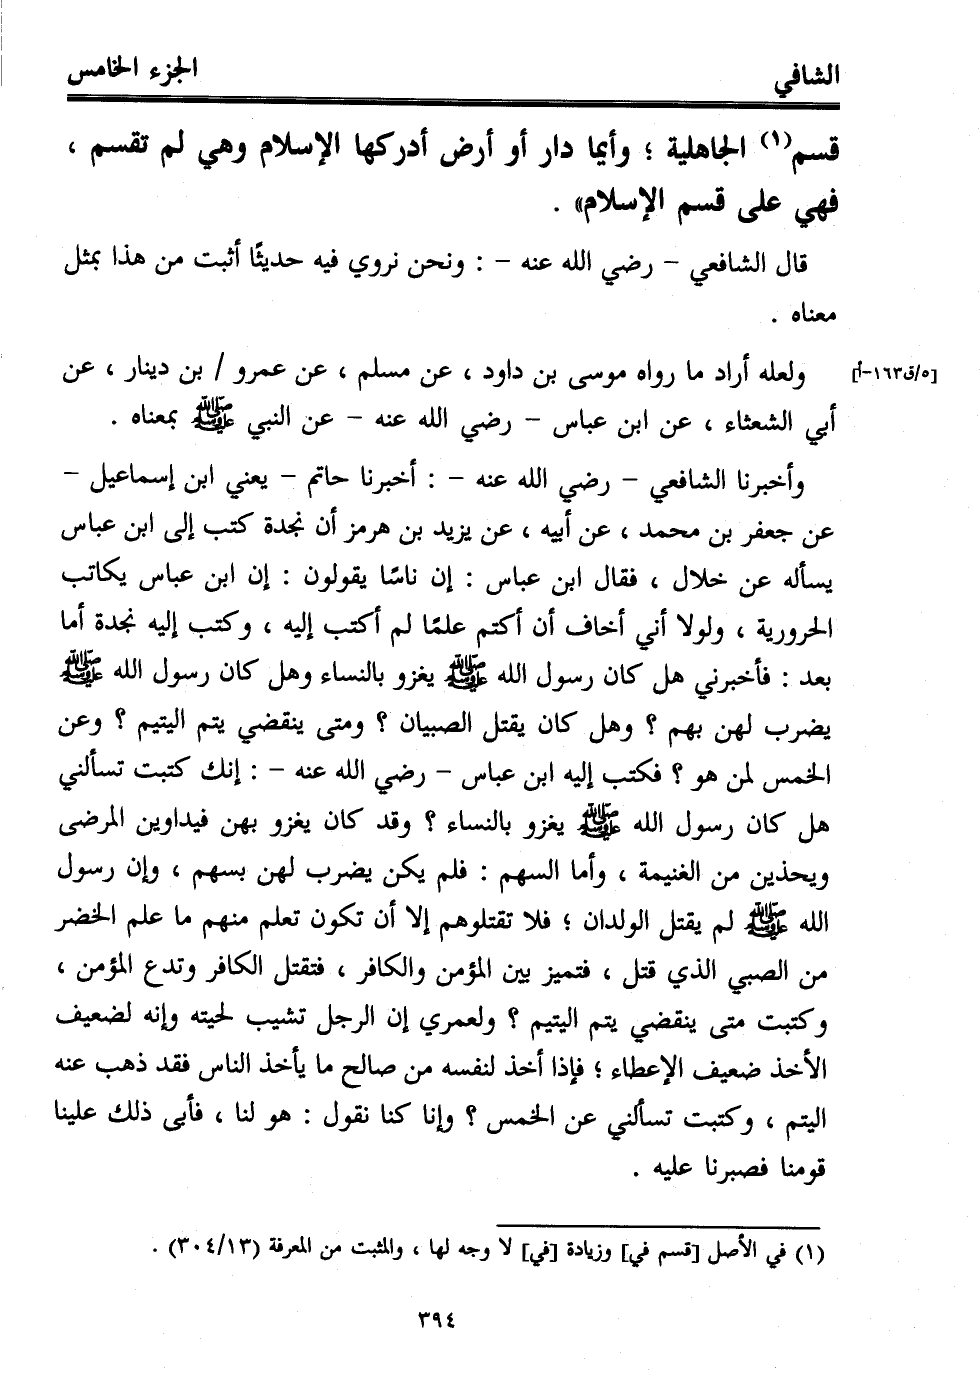 الشافي
الجزء الخامس
قسم(١) الجاهلية ؛ وأيما دار أو أرض أدركها الإسلام وهي لم تقسم ،
فهي على قسم الإسلام» .
قال الشافعي – رضي الله عنه – : ونحن نروي فيه حديثًا أثبت من هذا بمثل
معناه .
ولعله أراد ما رواه موسى بن داود ، عن مسلم ، عن عمرو / بن دينار ، عن
[٥/ق١٦٣-أ]
أبي الشعثاء ، عن ابن عباس – رضي الله عنه – عن النبي ﷺ بمعناه .
وأخبرنا الشافعي – رضي الله عنه – : أخبرنا حاتم – يعني ابن إسماعيل –
عن جعفر بن محمد ، عن أبيه ، عن يزيد بن هرمز أن نجدة كتب إلى ابن عباس
يسأله عن خلال ، فقال ابن عباس : إن ناسًا يقولون : إن ابن عباس يكاتب
الحرورية ، ولولا أني أخاف أن أكتم علمًا لم أكتب إليه ، وكتب إليه نجدة أما
بعد : فأخبرني هل كان رسول الله ﷺ يغزو بالنساء وهل كان رسول الله ﷺ
يضرب لهن بهم ؟ وهل كان يقتل الصبيان ؟ ومتى ينقضي يتم اليتيم ؟ وعن
الخمس لمن هو ؟ فكتب إليه ابن عباس – رضي الله عنه – : إنك كتبت تسألني
هل كان رسول الله ﷺ يغزو بالنساء ؟ وقد كان يغزو بهن فيداوين المرضى
ويحذين من الغنيمة ، وأما السهم : فلم يكن يضرب لهن بسهم ، وإن رسول
الله ﷺ لم يقتل الولدان ؛ فلا تقتلوهم إلا أن تكون تعلم منهم ما علم الخضر
من الصبي الذي قتل ، فتميز بين المؤمن والكافر ، فتقتل الكافر وتدع المؤمن ،
وكتبت متى ينقضي يتم اليتيم ؟ ولعمري إن الرجل تشيب لحيته وإنه لضعيف
الأخذ ضعيف الإعطاء ؛ فإذا أخذ لنفسه من صالح ما يأخذ الناس فقد ذهب عنه
اليتم ، وكتبت تسألني عن الخمس ؟ وإنا كنا نقول : هو لنا ، فأبى ذلك علينا
قومنا فصبرنا عليه .
(١) في الأصل [قسم في] وزيادة [في] لا وجه لها ، والمثبت من المعرفة (٣٠٤/١٣) .
٣٩٤